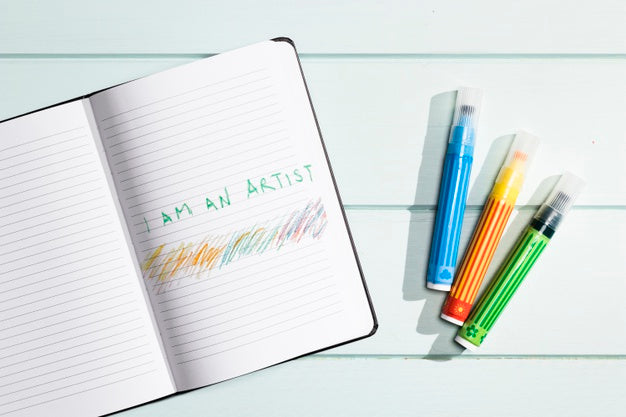 I AM AN ARTIST